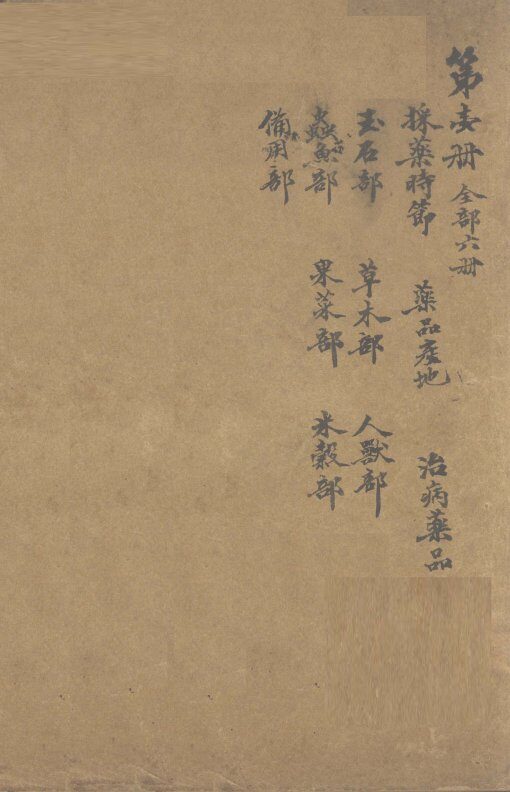 第壹册 全部六册
採藥時節 藥品產地 治病藥品
玉石部 草木部 人獸部
蟲魚部 果菜部 米穀部
備用部